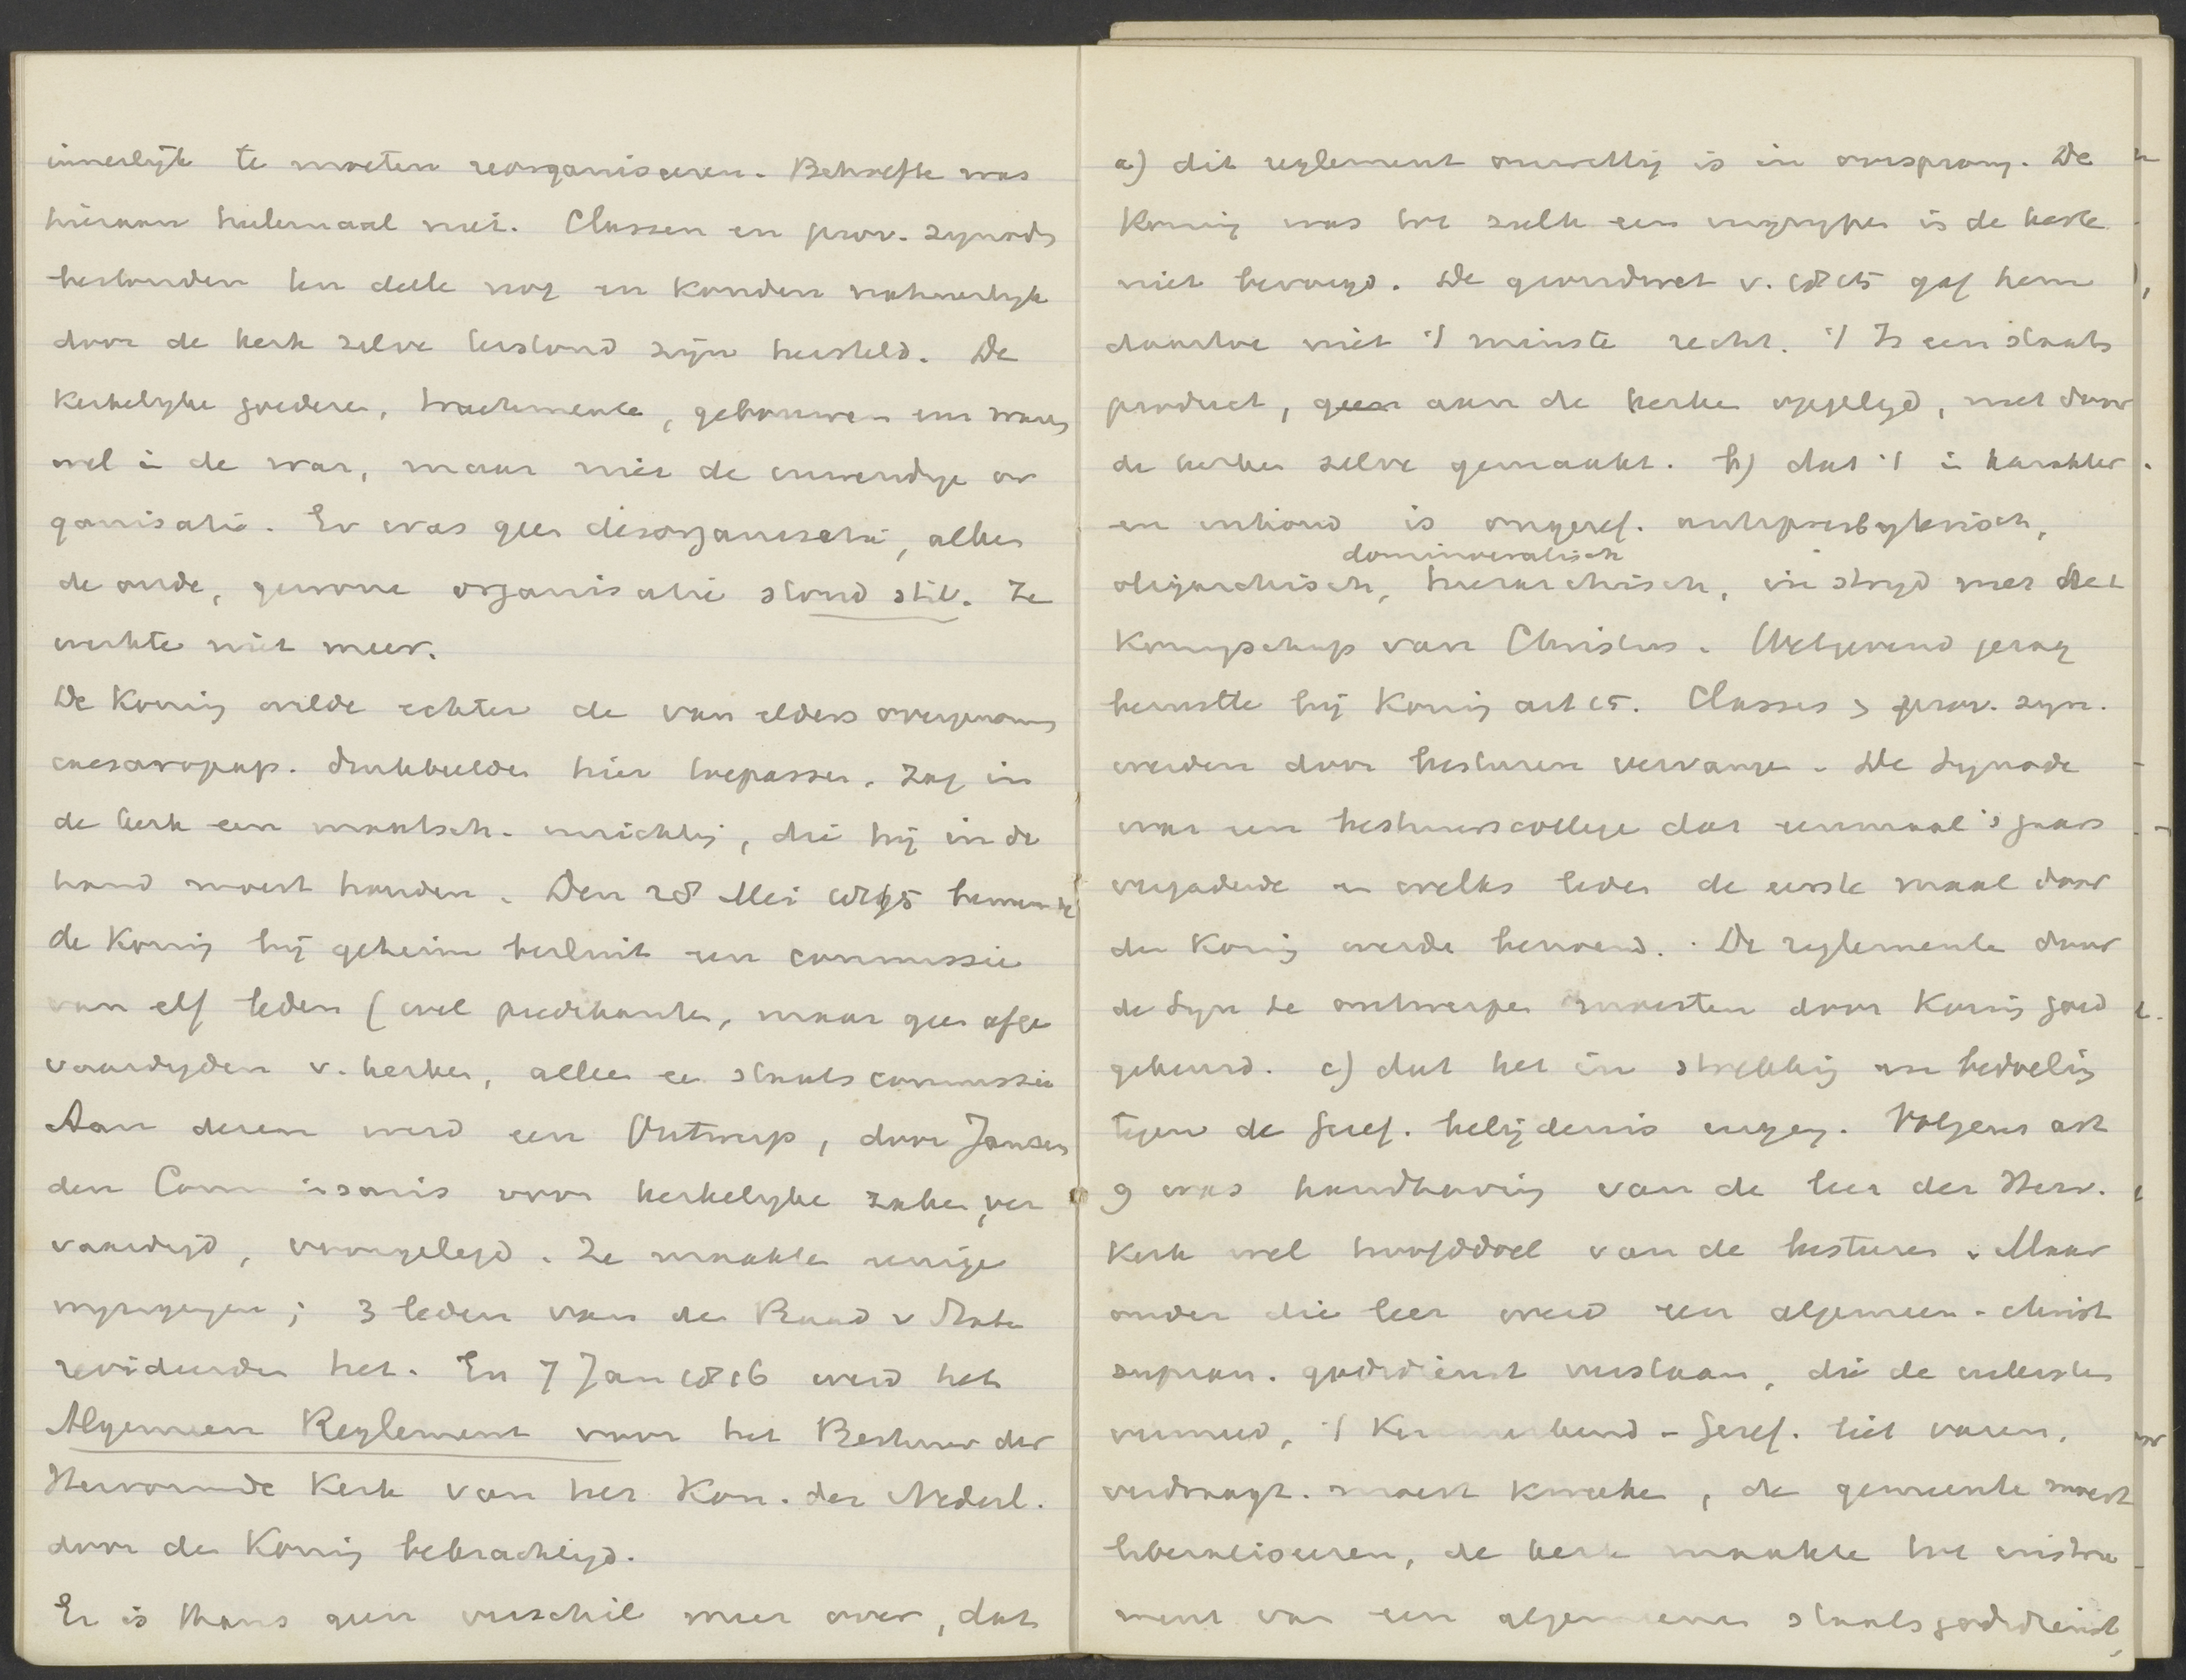 innerlijk te moeten reorganiseeren. Behoefte was
hieraan heelemaal niet. Classen en prov. synods
bestonden ten deele nog en konden natuurlijk
door de kerk zelve terstond zijn hersteld. De
kerkelijke goederen, tractemente, gebouwen enz waren
wel in de war, maar niet de inwendige or
ganisatie. Er was geen disorganisatie, alleen
de oude, gewone organisatie stond stil. Ze
werkte niet meer.
De Koning wilde echter de van elders overgenomen
caesaropap. denkbeelden hier toepassen. Zag in
de kerk een maatsch. inrichting, die hij in de
hand moest houden. Den 28 Mei 1815 benoemde
de Koning bij geheim besluit een commissie
van elf leden (wel predikanten, maar geen afge
vaardigden v. kerken, alleen een staatscommissie
Aan dezen werd een Ontwerp, door Janssen
den Commissaris voor kerkelijke zaken, ver
vaardigd, voorgelegd. Ze maakten eenige
wijzigingen; 3 leden van den Raad v State
revideerden het. En 7 Jan 1816 werd het
Algemeen Reglement voor het Bestuur der
Hervormde Kerk van het Kon. der Nederl.
door den Koning bekrachtigd.
Er is thans geen verschil meer over, dat
a) dit reglement onwettig is in oorsprong. De
Koning was tot zulk een ingrijpen in de kerk
niet bevoegd. De grondwet v. 1815 gaf hem
daartoe niet 't minste recht. 't Is een staats
product, geen aan de kerken opgelegd, niet door
de kerken zelve gemaakt. b) dat 't in karakter
en inhoud is ongeref. antipresbyteriaansch,
dominocratisch
oligarchisch, hierarchisch, in strijd met het
Koningschap van Christus. Wetgevend gezag
berustte bij Koning art 15. Classes & prov. syn.
werden door besturen vervangen. De Synode
was een bestuurscollege dat eenmaal 's jaars
vergaderde en welks leden de eerste maal door
den Koning werden benoemd. De reglementen door
de Syn te ontwerpen moesten door Koning goed
gekeurd. c) dat het in strekking en bedoeling
tegen de Geref. belijdenis inging. Volgens art
9 was handhaving van de leer der Herv.
Kerk wel hoofddoel van de besturen. Maar
onder die leer werd een algemeen-christ
supran. godsdienst verstaan, die de uitersten
vermeed, 't Kenmerkend-Geref. liet varen,
verdraagz. moest kweeken, de gemeente moest
liberaliseeren, de kerk maakte tot instru
ment van een algemeenen staatsgodsdienst,